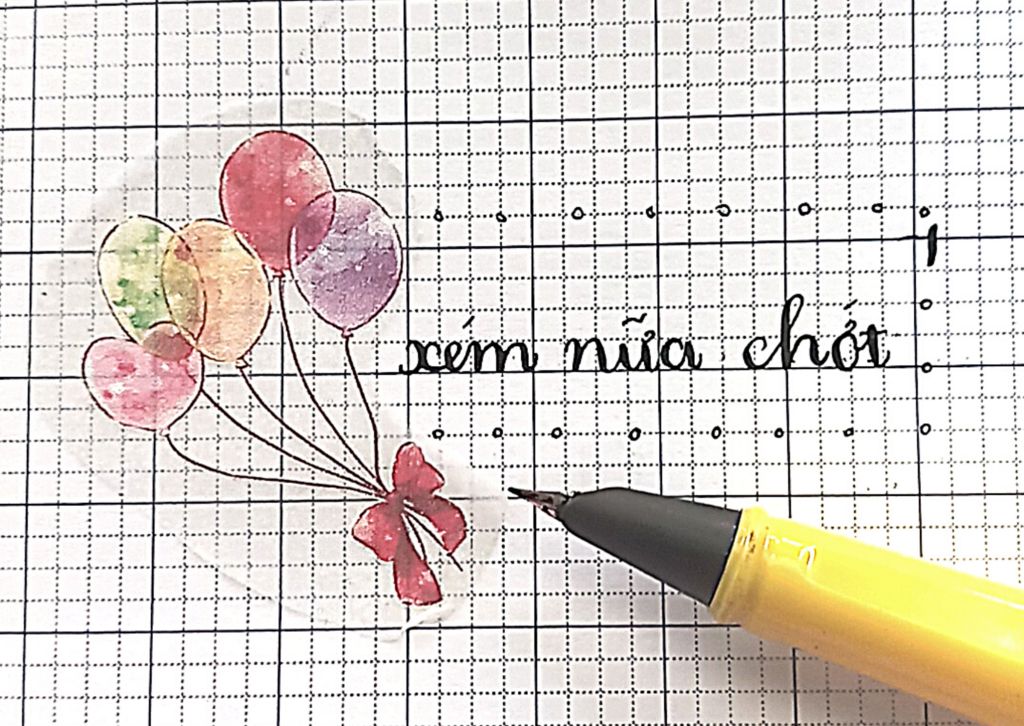 xém nữa chót